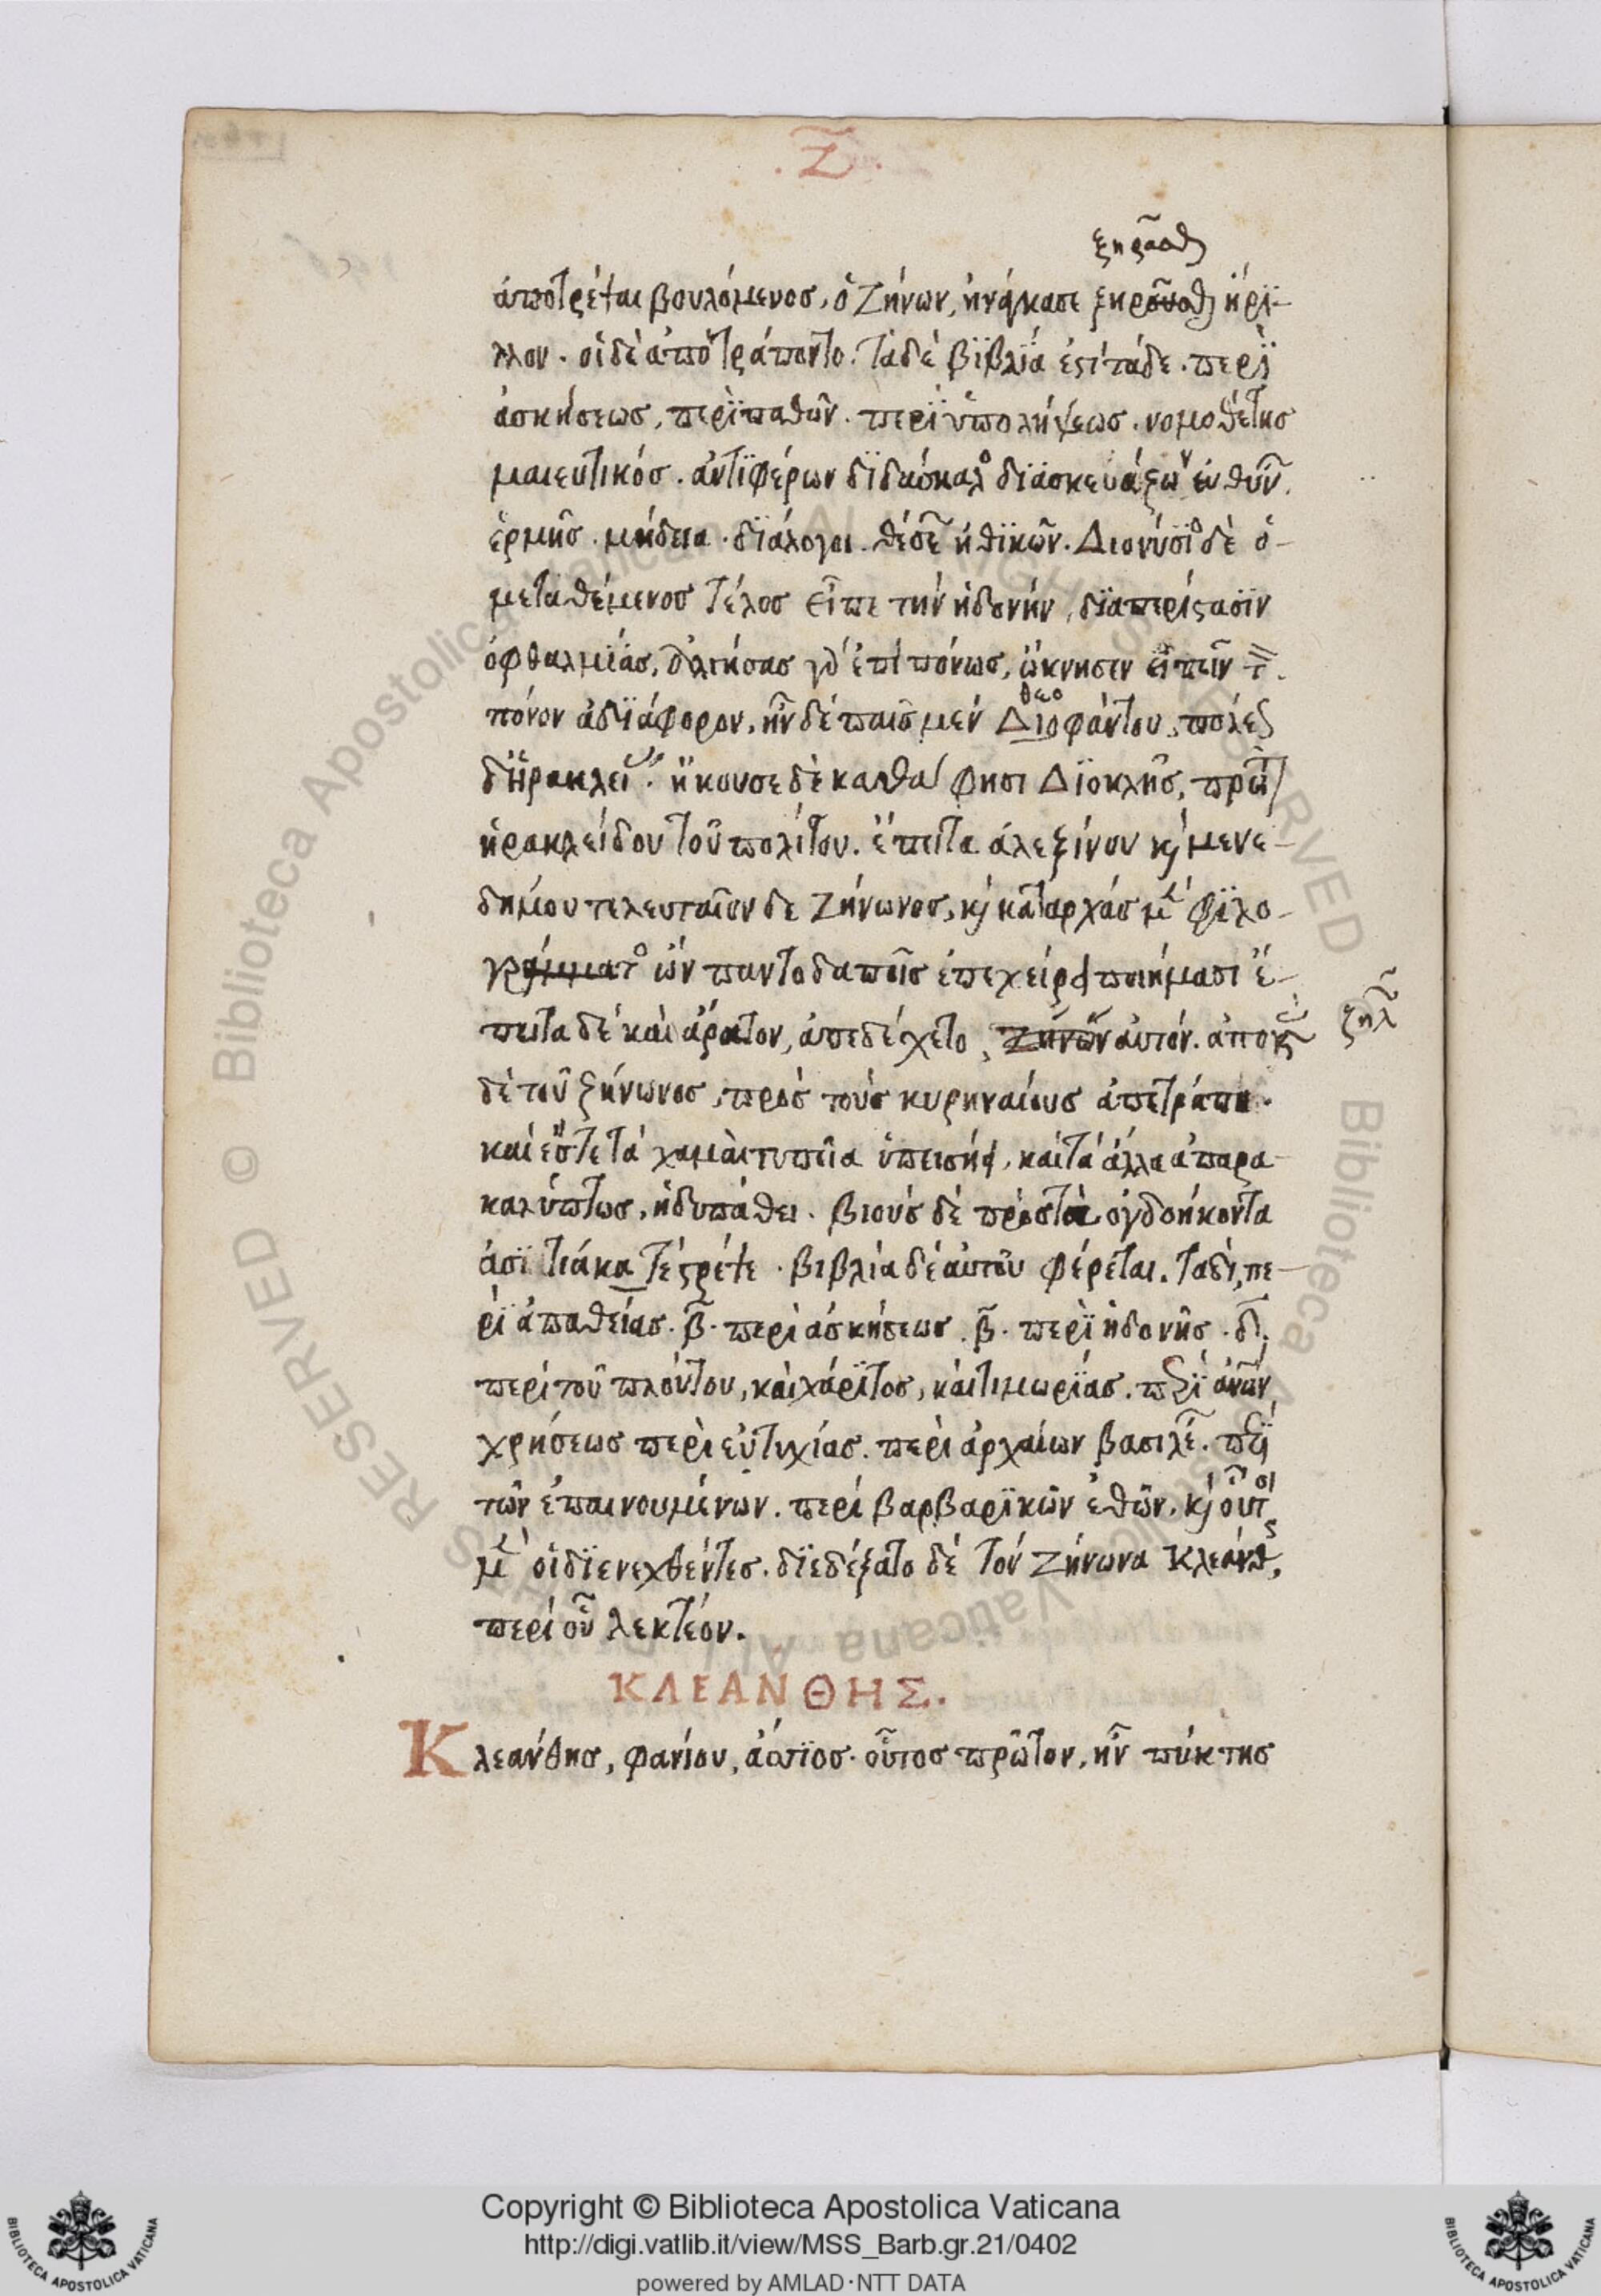 .Ζ̅.
ξηρᾶσθαι
ἀποτρέψαι βουλόμενοσ, ὁ Ζήνων, ἠνάγκασε ξηρᾶσθαι ἡρϊ-
λλον. οἱ δὲ ἀποτράποντο. τὰ δὲ βϊβλϊά ἐστὶ τάδε. περϊ
ἀσκήσεωσ, περϊ παθῶν. περϊ ὑπολήψεωσ. νομοθέτησ
μαιευτικόσ. ἀντϊφέρων δϊδάσκαλο δϊασκευάζων εὐθύν.
ἑρμῆσ. μήδεια. δϊάλογοι. θέσε ἠθϊκῶν. Διονύσϊο δὲ ὁ-
μεταθέμενοσ τέλοσ εἶπε τὴν ἡδονήν, δϊα περίστασϊν
ὀφθαλμϊάσ, ἀλγήσασ γὰρ ἐπιπόνωσ, ὤκνησεν εἰπεῖν τ.
πόνον ἀδϊάφορον, ἦν δέ παῖσ μέν Διοφάντου, πόλεως
θεο
δ' Ἡρακλεί. ἤκουσε δὲ καθά φησι Δϊοκλῆσ, πρῶτ
ἡρακλείδου τοῦ πολίτου. ἔπειτα ἀλεξίνου κ μενε-
δήμου τελευταῖον δε Ζήνωνοσ, κ κατ αρχάσ μ φϊλο-
γράμματο ὢν παντοδαποῖσ ἐπεχείρει ποιήμασι ἔ-
πειτα δέ καὶ ἄρατον, ἀπεδέχετο, Ζήνων αὐτόν. ἀποστ
ζηλ
δὲ τοῦ ζήνωνοσ, πρὸσ τοὺσ κυρηναίουσ ἀπετράπη.
καὶ εἴστε τά χαμαιτυπεῖα ὑπεισήει, καὶ τά ἄλλα ἀπαρα-
καλύπτωσ, ἡδυπάθει. βιούσ δέ πρὸσ τὰ ὀγδοήκοντα
ἀσϊτιάκα τέστρεψε. βιβλία δέ αὐτοῦ φέρεται. τάδε, πε-
ρὶ ἀπαθείασ. β̅. περὶ ἀσκήσεωσ. β̅. περὶ ἡδονῆσ. δ̅.
περὶ τοῦ πλούτου, καὶ χάρϊτοσ, καὶ τιμωρϊάσ. περϊ ἀνῶν
χρήσεωσ περὶ εὐτυχίασ. περὶ ἀρχαίων βασιλέ. περϊ
τῶν ἐπαινουμένων. περὶ βαρβαρϊκῶν ἐθῶν. κ οὗτοι
μ οἱ δϊενεχθέντεσ. δϊεδέξατο δέ τόν Ζήνωνα Κλεάνθς,
περὶ οὗ λεκτέον.
ΚΛΕΑΝΘΗΣ.
Κλεάνθησ, φανίου, ἄσσϊοσ. οὗτοσ πρῶτον, ἦν πύκτησ
Copyright © Biblioteca Apostolica Vaticana
http://digi.vatlib.it/view/MSS_Barb.gr.21/0402
powered by AMLAD·NTT DATA
BIBLIOTECA APOSTOLICA VATICANA
BIBLIOTECA APOSTOLICA VATICANA